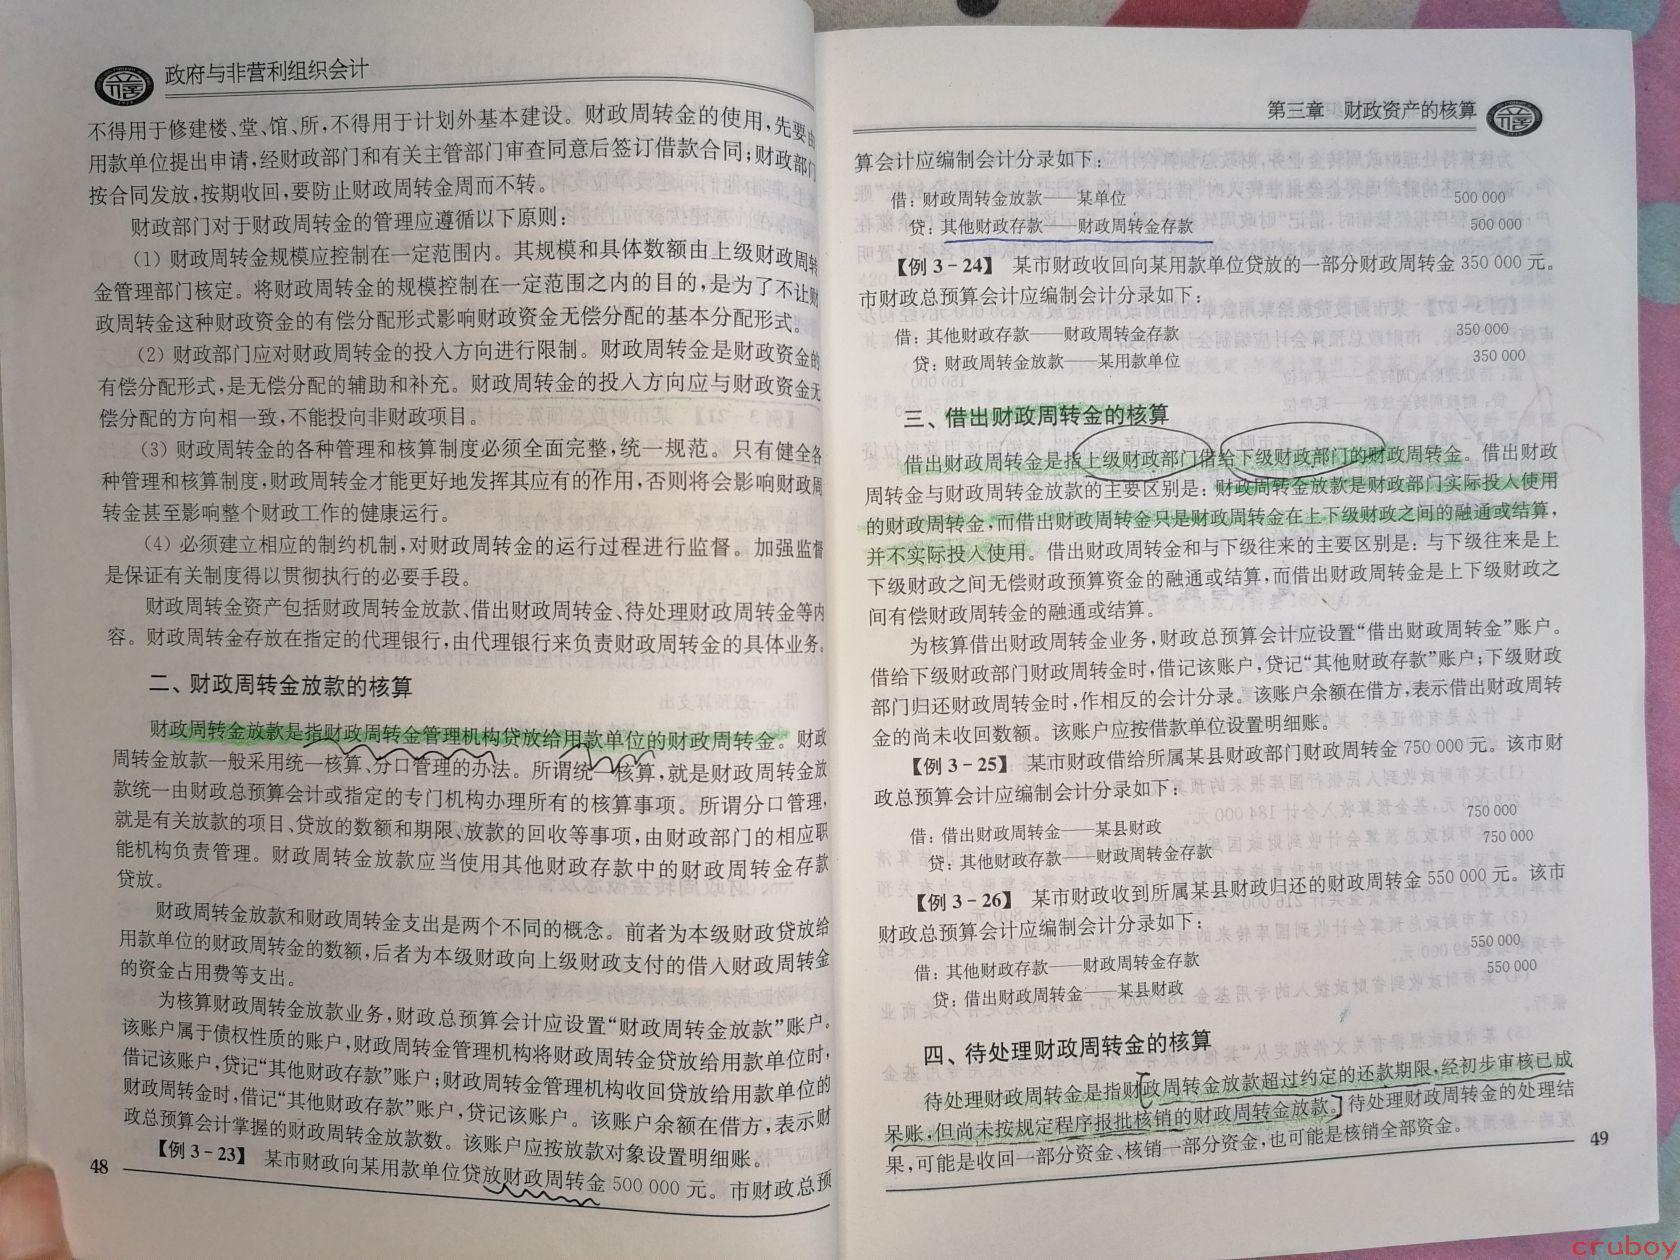 政府与非营利组织会计
不得用于修建楼、堂、馆、所,不得用于计划外基本建设。财政周转金的使用,先要由
用款单位提出申请,经财政部门和有关主管部门审查同意后签订借款合同;财政部门
按合同发放,按期收回,要防止财政周转金周而不转。
财政部门对于财政周转金的管理应遵循以下原则:
(1) 财政周转金规模应控制在一定范围内。其规模和具体数额由上级财政周转
金管理部门核定。将财政周转金的规模控制在一定范围之内的目的,是为了不让财
政周转金这种财政资金的有偿分配形式影响财政资金无偿分配的基本分配形式。
(2) 财政部门应对财政周转金的投入方向进行限制。财政周转金是财政资金的
有偿分配形式,是无偿分配的辅助和补充。财政周转金的投入方向应与财政资金无
偿分配的方向相一致,不能投向非财政项目。
(3) 财政周转金的各种管理和核算制度必须全面完整,统一规范。只有健全各
种管理和核算制度,财政周转金才能更好地发挥其应有的作用,否则将会影响财政周
转金甚至影响整个财政工作的健康运行。
(4) 必须建立相应的制约机制,对财政周转金的运行过程进行监督。加强监督
是保证有关制度得以贯彻执行的必要手段。
财政周转金资产包括财政周转金放款、借出财政周转金、待处理财政周转金等内
容。财政周转金存放在指定的代理银行,由代理银行来负责财政周转金的具体业务。
二、财政周转金放款的核算
财政周转金放款是指财政周转金管理机构贷放给用款单位的财政周转金。财政
周转金放款一般采用统一核算、分口管理的办法。所谓统一核算,就是财政周转金放
款统一由财政总预算会计或指定的专门机构办理所有的核算事项。所谓分口管理,
就是有关放款的项目、贷放的数额和期限、放款的回收等事项,由财政部门的相应职
能机构负责管理。财政周转金放款应当使用其他财政存款中的财政周转金存款
贷放。
财政周转金放款和财政周转金支出是两个不同的概念。前者为本级财政贷放给
用款单位的财政周转金的数额,后者为本级财政向上级财政支付的借入财政周转金
的资金占用费等支出。
为核算财政周转金放款业务,财政总预算会计应设置“财政周转金放款”账户。
该账户属于债权性质的账户,财政周转金管理机构将财政周转金贷放给用款单位时,
借记该账户,贷记“其他财政存款”账户;财政周转金管理机构收回贷放给用款单位的
财政周转金时,借记“其他财政存款”账户,贷记该账户。该账户余额在借方,表示财
政总预算会计掌握的财政周转金放款数。该账户应按放款对象设置明细账。
【例 3-23】 某市财政向某用款单位贷放财政周转金 500 000 元。市财政总预
48
第三章 财政资产的核算
算会计应编制会计分录如下:
借: 财政周转金放款——某单位 500 000
贷: 其他财政存款——财政周转金存款 500 000
【例 3-24】 某市财政收回向某用款单位贷放的一部分财政周转金 350 000 元。
市财政总预算会计应编制会计分录如下:
借: 其他财政存款——财政周转金存款 350 000
贷: 财政周转金放款——某用款单位 350 000
三、借出财政周转金的核算
借出财政周转金是指上级财政部门借给下级财政部门的财政周转金。借出财政
周转金与财政周转金放款的主要区别是: 财政周转金放款是财政部门实际投入使用
的财政周转金,而借出财政周转金只是财政周转金在上下级财政之间的融通或结算,
并不实际投入使用。借出财政周转金和与下级往来的主要区别是: 与下级往来是上
下级财政之间无偿财政预算资金的融通或结算,而借出财政周转金是上下级财政之
间有偿财政周转金的融通或结算。
为核算借出财政周转金业务,财政总预算会计应设置“借出财政周转金”账户。
借给下级财政部门财政周转金时,借记该账户,贷记“其他财政存款”账户;下级财政
部门归还财政周转金时,作相反的会计分录。该账户余额在借方,表示借出财政周转
金的尚未收回数额。该账户应按借款单位设置明细账。
【例 3-25】 某市财政借给所属某县财政部门财政周转金 750 000 元。该市财
政总预算会计应编制会计分录如下:
借: 借出财政周转金——某县财政 750 000
贷: 其他财政存款——财政周转金存款 750 000
【例 3-26】 某市财政收到所属某县财政归还的财政周转金 550 000 元。该市
财政总预算会计应编制会计分录如下:
借: 其他财政存款——财政周转金存款 550 000
贷: 借出财政周转金——某县财政 550 000
四、待处理财政周转金的核算
待处理财政周转金是指财政周转金放款超过约定的还款期限,经初步审核已成
呆账,但尚未按规定程序报批核销的财政周转金放款。待处理财政周转金的处理结
果,可能是收回一部分资金、核销一部分资金,也可能是核销全部资金。
49
cruboy